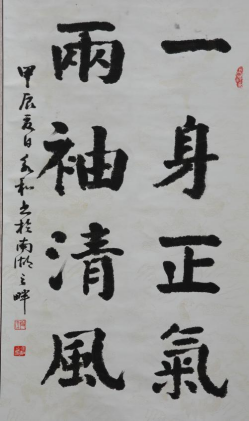 一身正氣
兩袖清風
甲辰夏日友和书於南湖之畔